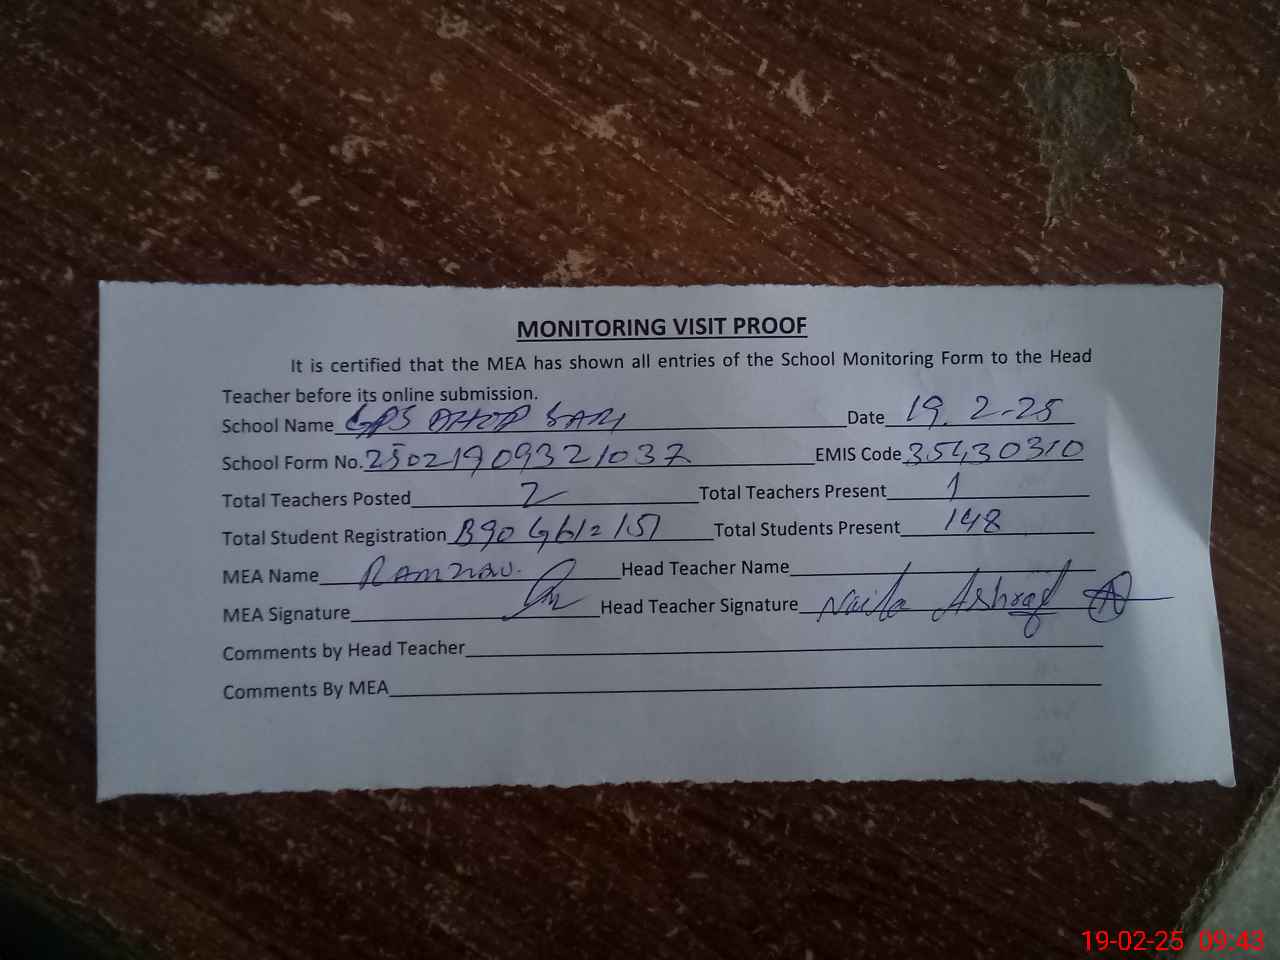 MONITORING VISIT PROOF
It is certified that the MEA has shown all entries of the School Monitoring Form to the Head
Teacher before its online submission.
School Name GPS DHOP SARI Date 19.2-25
School Form No. 25021909321037 EMIS Code 35430310
Total Teachers Posted 2 Total Teachers Present 1
Total Student Registration B90 G61=151 Total Students Present 148
MEA Name RAMZAN. Head Teacher Name
MEA Signature Head Teacher Signature Naila Ashraf
Comments by Head Teacher
Comments By MEA
19-02-25 09:43